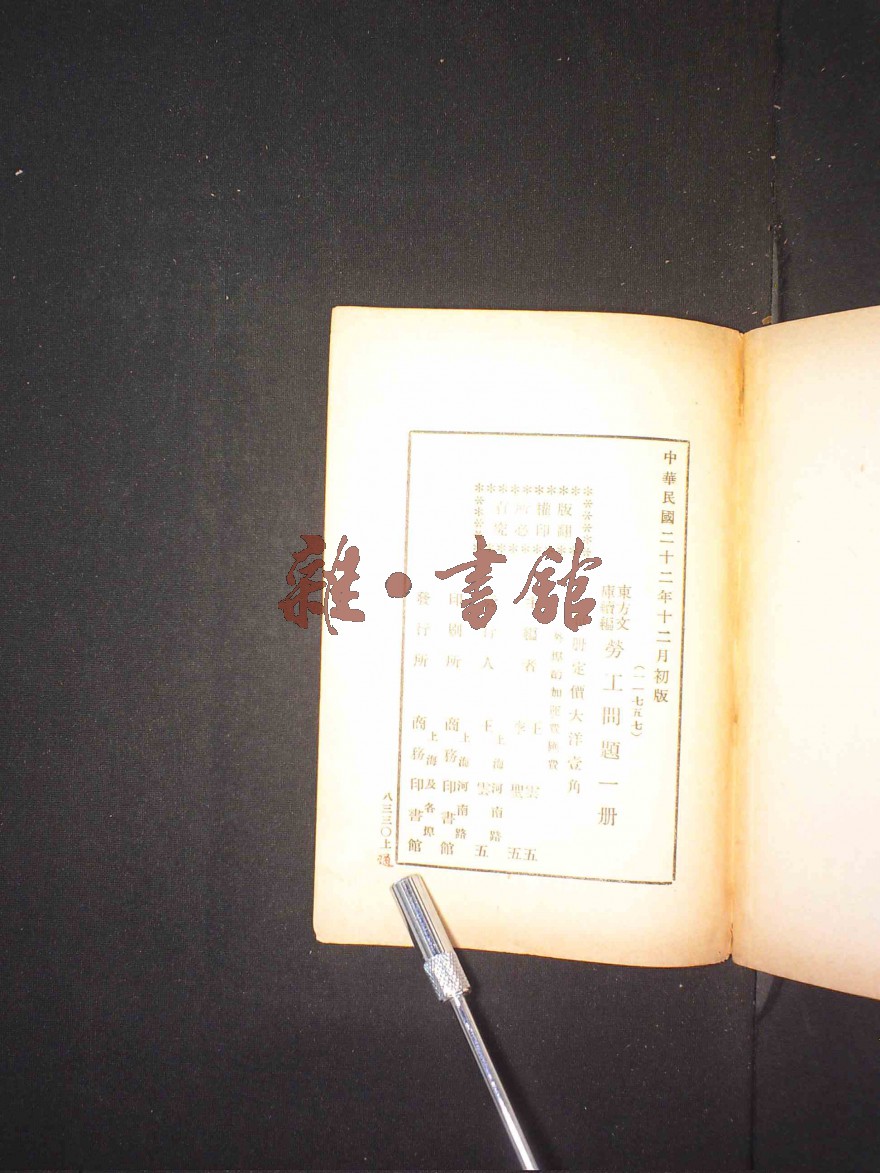 中華民國二十二年十二月初版
(一一七五七)
東方文
庫續編
勞工問題一册
册定價大洋壹角
外埠酌加運費匯費
編者
王雲五
李聖五
行人
上海河南路
王雲五
印刷所
上海河南路
商務印書館
發行所
上海及各埠
商務印書館
版權
翻印必究
八三三〇上
雜·書館